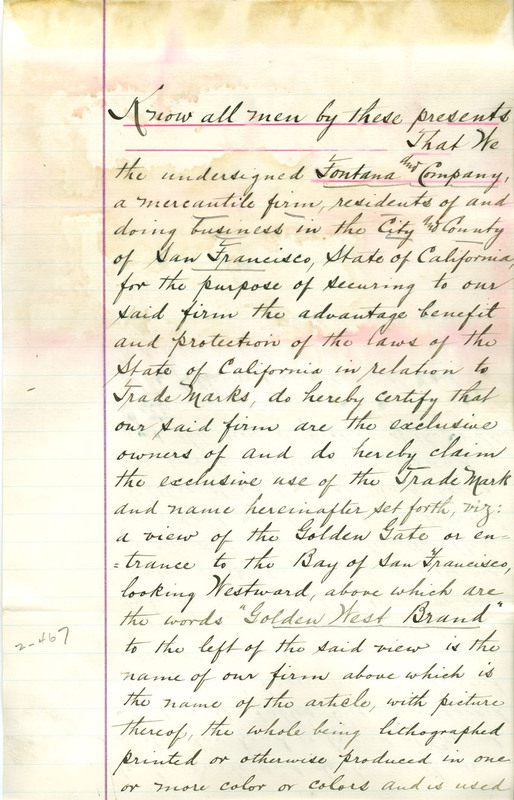 Know all men by these presents
That We
the undersigned Fontana and Company,
a mercantile firm, residents of and
doing business in the City and County
of San Francisco, State of California,
for the purpose of securing to our
said firm the advantage benefit
and protection of the laws of the
State of California in relation to
Trade Marks, do hereby certify that
our said firm are the exclusive
owners of and do hereby claim
the exclusive use of the Trade Mark
and name hereinafter set forth, viz:
a view of the Golden Gate or en=
=trance to the Bay of San Francisco,
looking Westward, above which are
the words "Golden West Brand"
2-467
to the left of the said view is the
name of our firm above which is
the name of the article, with picture
thereof, the whole being lithographed
printed or otherwise produced in one
or more color or colors and is used